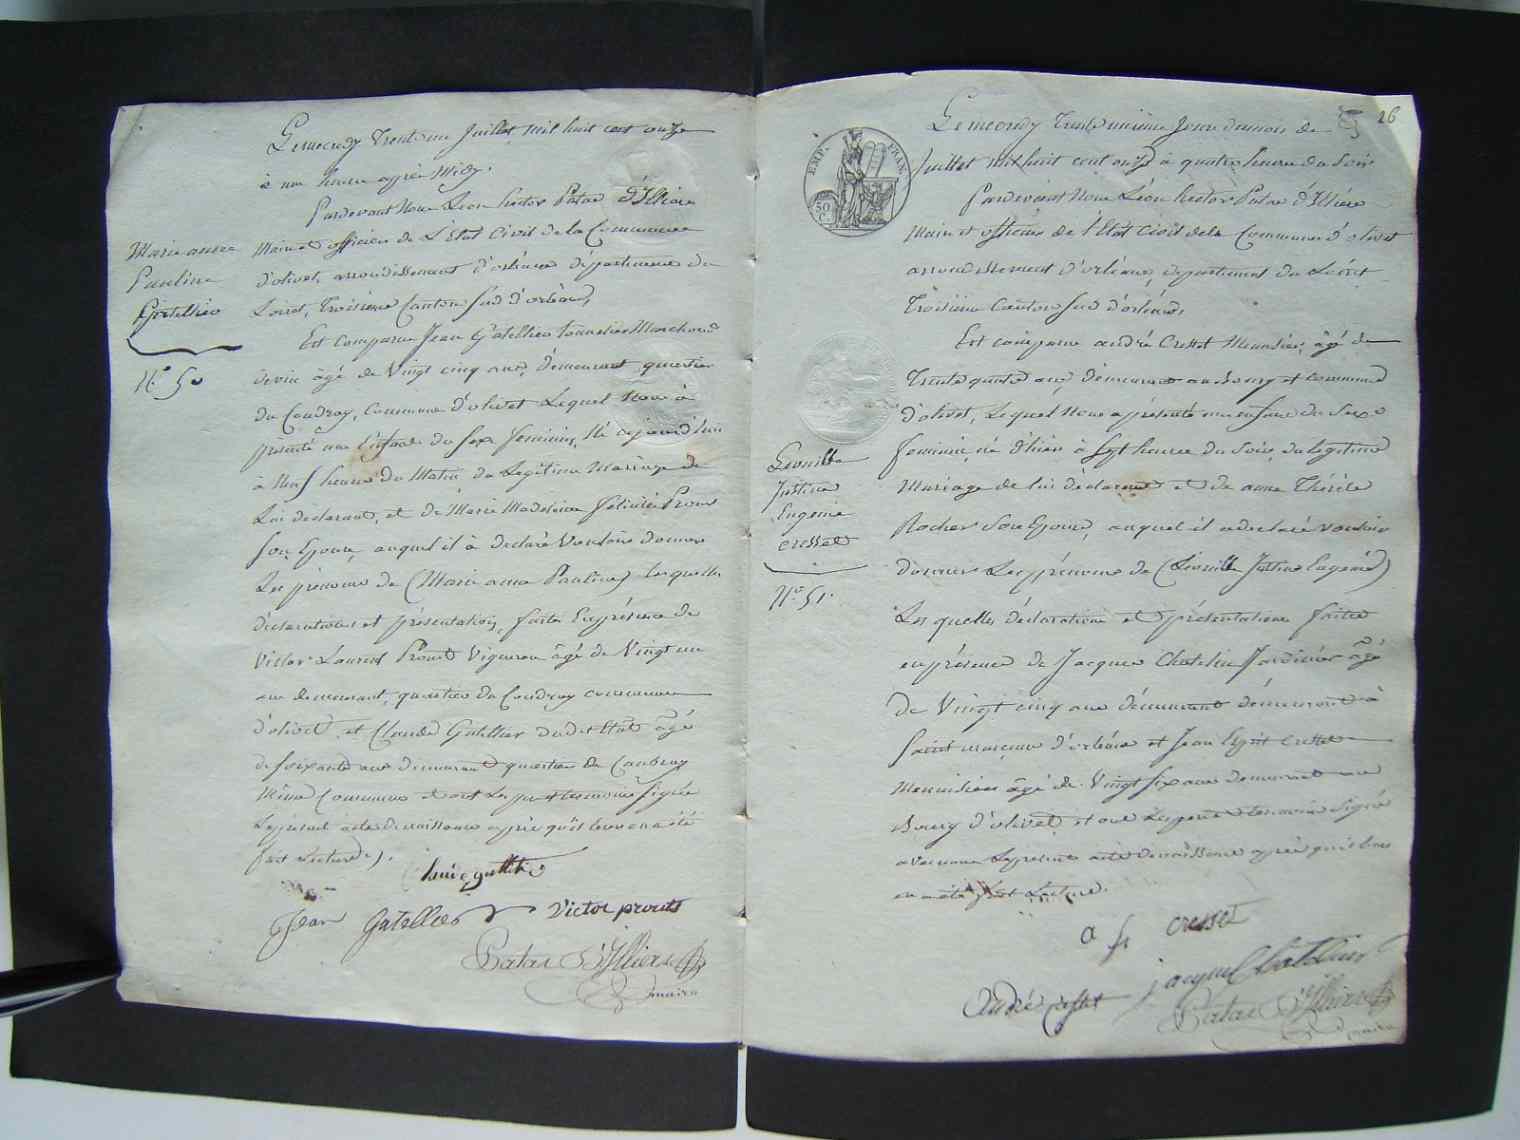 Le mecredy Trente un Juillet mil huit cent onze
à une heure après Midy.
Pardevant Nous Léon hector Patas d'Illiers
Marie anne
Pauline
Gatellier
N° 50
Maire et officier de L'Etat Civil de la Commune
d'olivet, arrondissement d'orléans département du
Loiret, Troisième Canton Sud d'orléans,
Est Comparu Jean Gatellier tonnelier Marchand
devin âgé de Vingt cinq ans, demeurant quartier
du Coudray, Commune d'olivet Lequel Nous à
présenté une Enfant du Sexe feminin, Né aujourd'hui
à Neuf heure du Matin du Legitime Mariage de
Lui déclarant, et de Marie Madeleine félicité Prout
Son Epouse, auquel il à declaré Vouloir donner
Les prénoms de (Marie anne Pauline) lesquelles
déclarations et présentation, faite Enprésence de
Victor Laurent Prout Vigneron âgé de Vingt un
ans demeurant, quartier du Coudray commune
d'olivet, et Claude Gatellier dudit Etat âgé
de soixante ans demeurant quartier du Coudray
Même Commune et ont Les père et temoins signée
Leprésent acte de naissance après qu'il leur en a été
fait Lecture).
Claude gatellier
Jean Gatellier Victor prouts
Patas D'Illiers
maire
26
EMP. FRAN.
50 C.
Le mecredy Trente unième Jour du mois de
Juillet mil huit cent onze à quatre heure du Soir
Pardevant Nous Léon hector Patas d'Illiers
Maire et officier de l'Etat Civil de la Commune d'olivet
arrondissement d'orléans, departement du Loiret
Troisième Canton Sud d'orléans,
Est comparu andré Cresset Menuisier, âgé de
Trente quatre ans, demeurant au bourg et commune
d'olivet, Lequel Nous a présenté une enfant du Sexe
feminin né d'hier à Sept heures du Soir, du legitime
Mariage de lui déclarant et de anne Thérèse
Rocher Son Epouse, auquel il a declaré vouloir
donner Les prénoms de (Lieuville Justine Eugenie)
Lieuville
Justine
Eugenie
cresset
N° 51.
Les quelles déclaration et présentation faites
en présence de Jacques Chatelin Jardinier âgé
de Vingt cinq ans demeurant demeurant à
Saint marceau d'orléans et Jean Esprit Cresset
Menuisier âgé de Vingt six ans demeurant au
Bourg d'olivet, et ont Les père et temoin signée
avec nous Leprésent acte de naissance après qu'il leur
en a été fait Lecture.
a f cresset
jacque Chatelin
André Cresset
Patas D'Illiers
maire